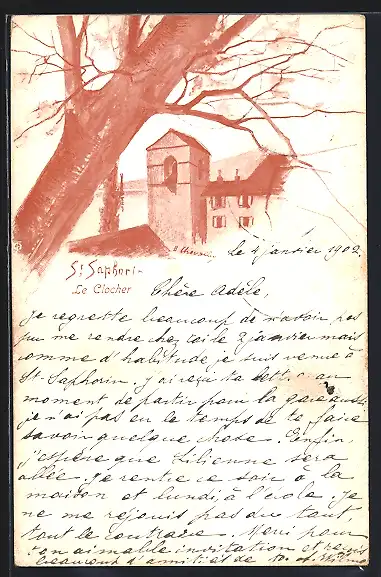 St Saphorin
Le Clocher
le 4 janvier 1902
Chère Adèle,
Je regrette beaucoup de n'avoir pas
pu me rendre chez toi le 2 janvier mais
comme d'habitude je suis venue à
St. Saphorin. J'ai reçu ta lettre au
moment de partir pour la gare aussi
je n'ai pas eu le temps de te faire
savoir quelque chose. Enfin,
j'espère que Lilienne sera
allée. Je rentre ce soir à la
maison et lundi à l'école. Je
ne me rejouis pas du tout
tout le contraire. Merci pour
ton aimable invitation et reçois
beaucoup d'amitiés de